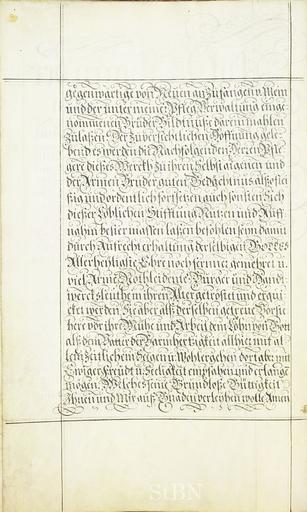 gegenwärtige von Neuen anzufangen v: Mein
und der unter meiner Pfleg Verwaltung einge
nommenen Brüder Bildtnüße darein mahlen
zulaßen. Der zuversichtlichen Hoffnung gele
bend es werden die Nachfolgenden Herren Pfle
gere dießes Werckh zu ihren Selbst aigenen und
der Armen Brüder guten Gedächtnus alßo flei
ßig und ordentlich fortsezen auch sonsten Sich
dießer Löblichen Stifftung Nutzen und Auff
nehmen beßer maßen laßen befohlen seyn damit
durch Aufrechterhaltung derselbigen GOTTES
Allerheyligste Ehre noch ferner gemehret u.
viel Arme Nothleidende Burger und Handt
wercksleuth in ihren Alter getröstet und erqui
cket werden Sie aber alß derselben getreue Vorste
here vor ihre Mühe und Arbeit dem Lohn von Gott
alß dem Vatter der Barmhertzigkeit allhier mit al
lem Zeitlichem Seegen u. Wohlergehen dort aber mit
Ewiger Freudt u. Seeligkeit empfahen und erlange
mögen. Welches seine Grundloße Gütigkeit
Ihnen und Mir auß Gnaden verleyhen wolle Amen
StBN